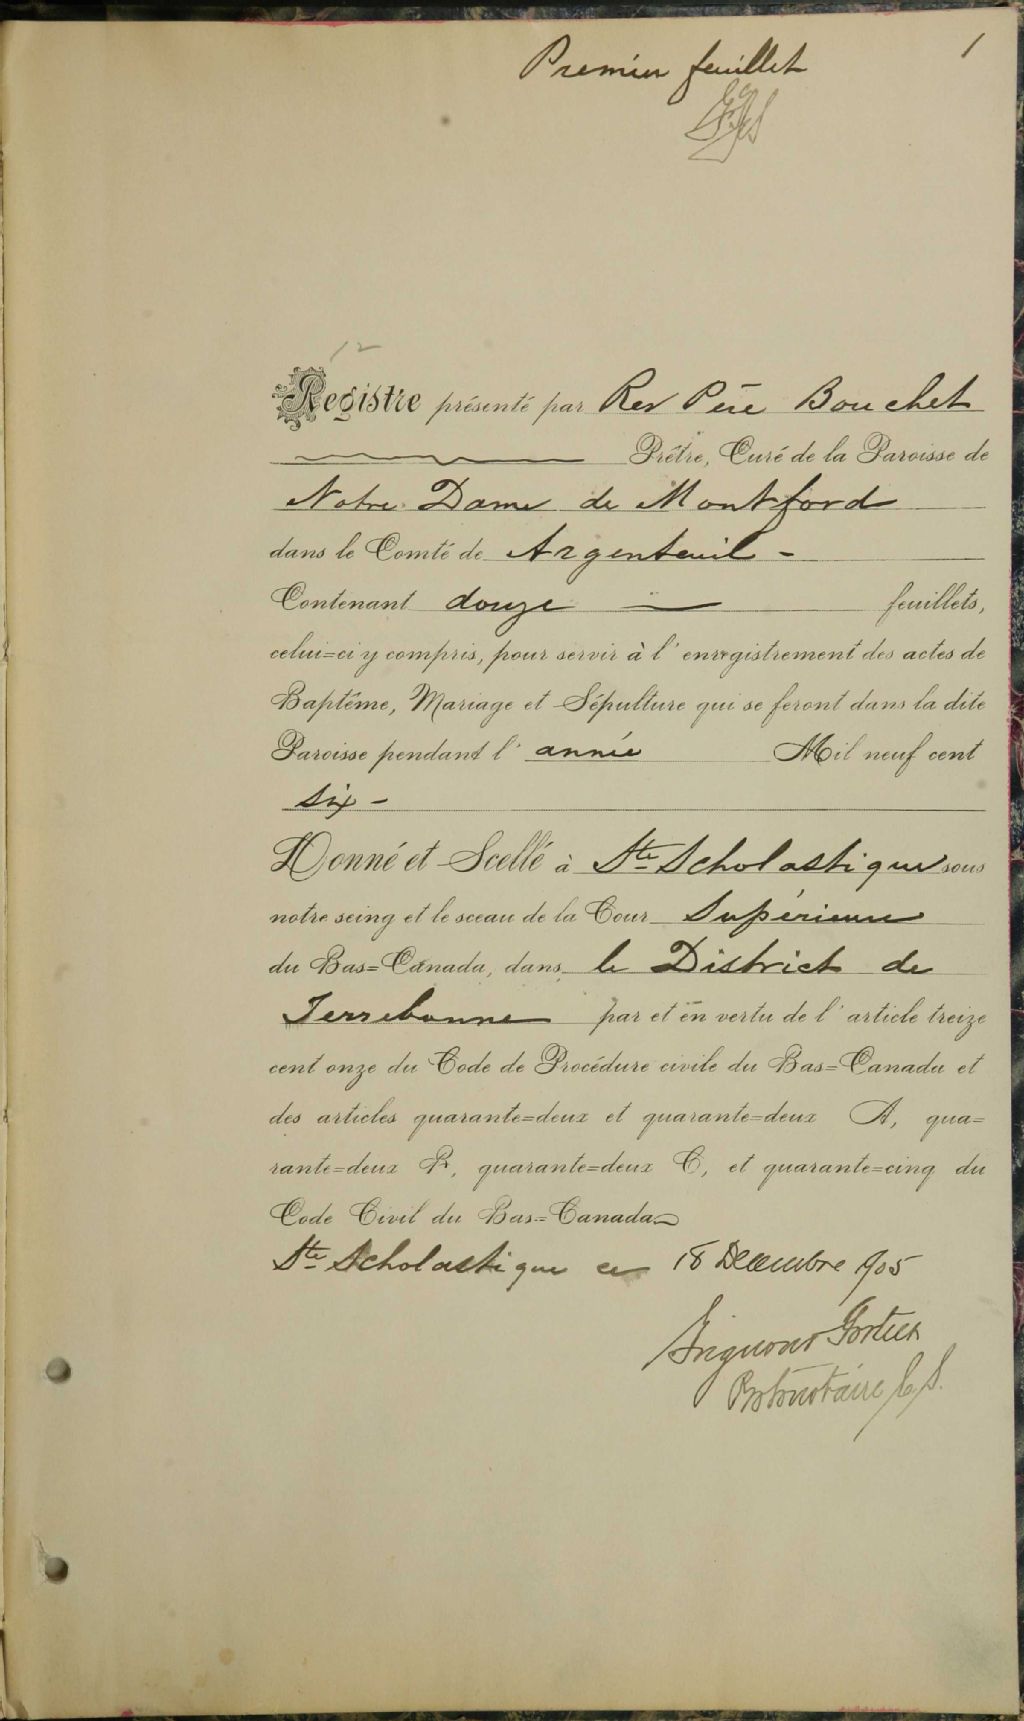 Premier feuillet
1
12
Registre présenté par Rev Père Bouchet
Prêtre, Curé de la Paroisse de
Notre Dame de Montford
dans le Comté de Argenteuil -
Contenant douze feuillets,
celui=ci y compris, pour servir à l'enregistrement des actes de
Baptême, Mariage et Sépulture qui se feront dans la dite
Paroisse pendant l'année Mil neuf cent
six -
Donné et Scellé à Ste Scholastique sous
notre seing et le sceau de la Cour Supérieure
du Bas=Canada, dans le District de
Terrebonne par et en vertu de l'article treize
cent onze du Code de Procédure civile du Bas=Canada et
des articles quarante=deux et quarante=deux A, qua=
rante=deux B, quarante=deux C, et quarante=cinq du
Code Civil du Bas=Canada
Ste Scholastique ce 18 Decembre 905
Grignon Fortier
Protonotaire C. S.